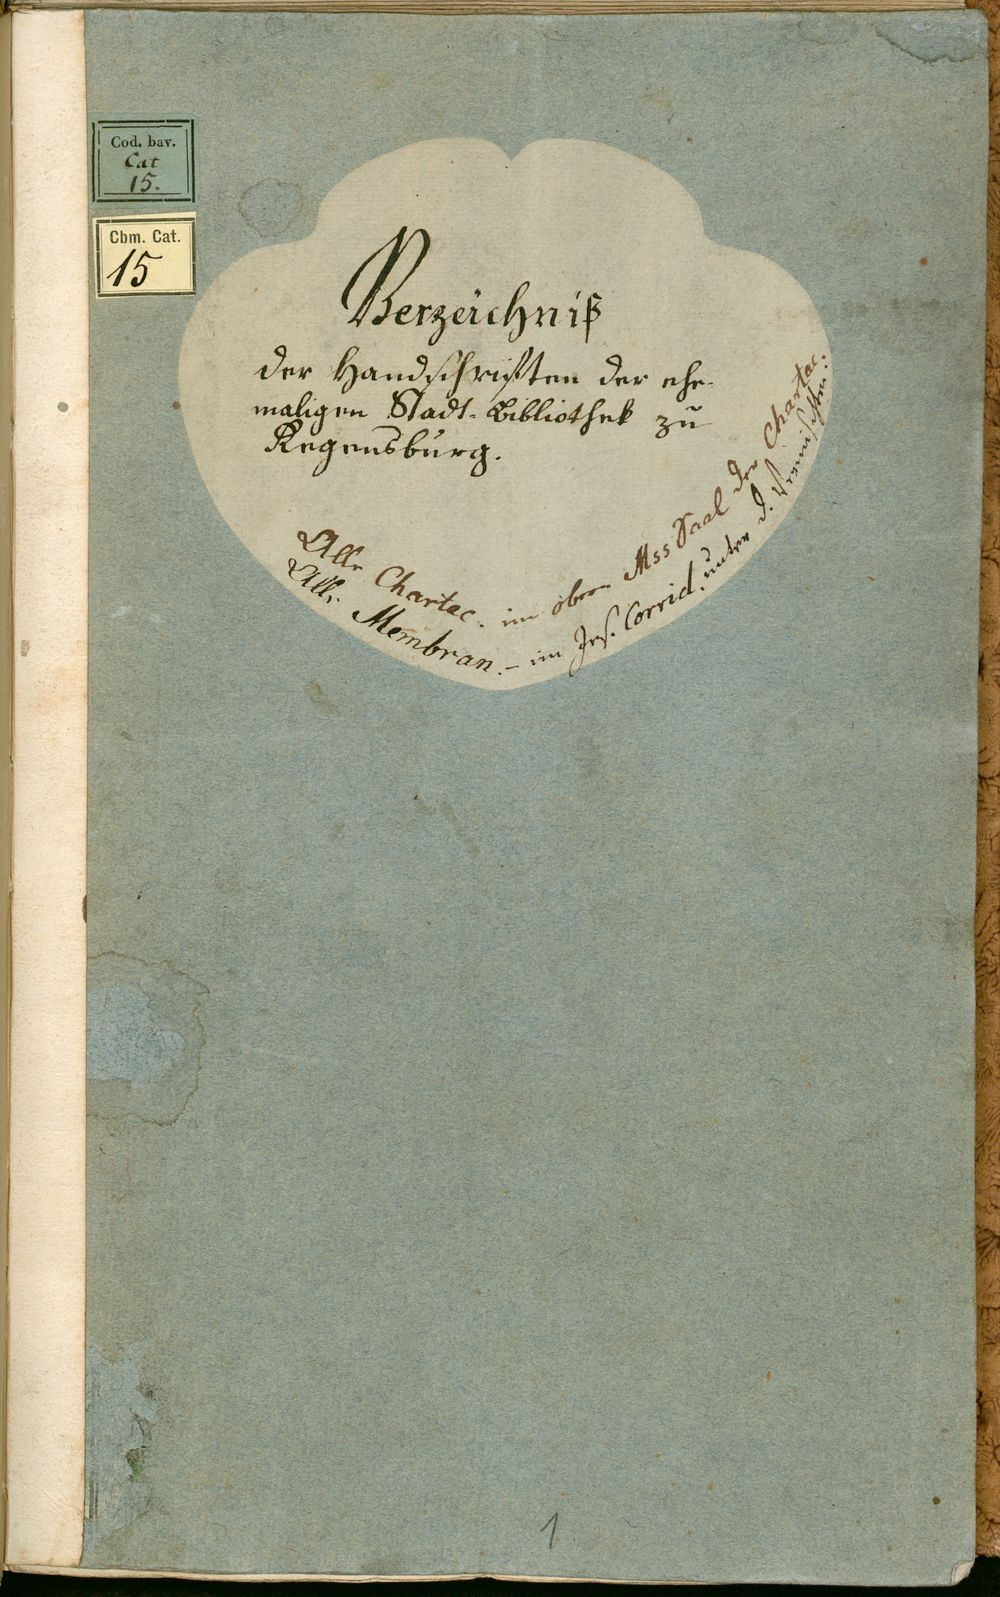 Cod. bav.
Cat
15.
Cbm. Cat.
15
Verzeichniß
der Handschriften der ehe-
maligen Stadt-Bibliothek zu
Regensburg.
Alle Chartac. im obern Mss Saal der Chartac.
Alle Membran. – im Jes. Corrid. unter d. Vermischten.
1